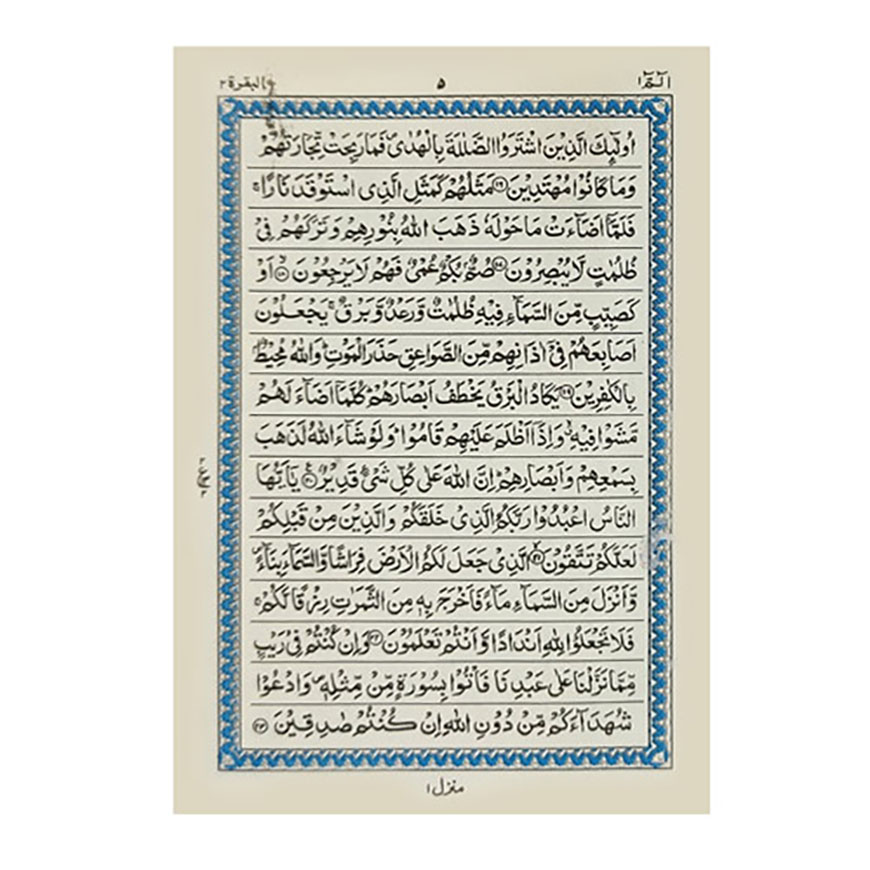 الٓمّٓ ١ ۵ البقرة ٢
اُولٰٓئِكَ الَّذِيْنَ اشْتَرَوُا الضَّلٰلَةَ بِالْهُدٰى فَمَا رَبِحَتْ تِّجَارَتُهُمْ
وَمَا كَانُوْا مُهْتَدِيْنَ ۝١٦ مَثَلُهُمْ كَمَثَلِ الَّذِى اسْتَوْقَدَ نَارًا ۚ
فَلَمَّآ اَضَآءَتْ مَا حَوْلَهٗ ذَهَبَ اللّٰهُ بِنُوْرِهِمْ وَتَرَكَهُمْ فِىْ
ظُلُمٰتٍ لَّا يُبْصِرُوْنَ ۝١٧ صُمٌّۢ بُكْمٌ عُمْىٌ فَهُمْ لَا يَرْجِعُوْنَ ۝١٨ اَوْ
كَصَيِّبٍ مِّنَ السَّمَآءِ فِيْهِ ظُلُمٰتٌ وَّرَعْدٌ وَّبَرْقٌ ۚ يَجْعَلُوْنَ
اَصَابِعَهُمْ فِىْٓ اٰذَانِهِمْ مِّنَ الصَّوَاعِقِ حَذَرَ الْمَوْتِ ؕ وَاللّٰهُ مُحِيْطٌۢ
بِالْكٰفِرِيْنَ ۝١٩ يَكَادُ الْبَرْقُ يَخْطَفُ اَبْصَارَهُمْ ؕ كُلَّمَآ اَضَآءَ لَهُمْ
مَّشَوْا فِيْهِ ۙ وَاِذَآ اَظْلَمَ عَلَيْهِمْ قَامُوْا ؕ وَلَوْ شَآءَ اللّٰهُ لَذَهَبَ
بِسَمْعِهِمْ وَاَبْصَارِهِمْ ؕ اِنَّ اللّٰهَ عَلٰى كُلِّ شَىْءٍ قَدِيْرٌ ۝٢٠ يٰٓاَيُّهَا
النَّاسُ اعْبُدُوْا رَبَّكُمُ الَّذِىْ خَلَقَكُمْ وَالَّذِيْنَ مِنْ قَبْلِكُمْ
لَعَلَّكُمْ تَتَّقُوْنَ ۝٢١ الَّذِىْ جَعَلَ لَكُمُ الْاَرْضَ فِرَاشًا وَّالسَّمَآءَ بِنَآءً ۪
وَّاَنْزَلَ مِنَ السَّمَآءِ مَآءً فَاَخْرَجَ بِهٖ مِنَ الثَّمَرٰتِ رِزْقًا لَّكُمْ ۚ
فَلَا تَجْعَلُوْا لِلّٰهِ اَنْدَادًا وَّاَنْتُمْ تَعْلَمُوْنَ ۝٢٢ وَاِنْ كُنْتُمْ فِىْ رَيْبٍ
مِّمَّا نَزَّلْنَا عَلٰى عَبْدِنَا فَاْتُوْا بِسُوْرَةٍ مِّنْ مِّثْلِهٖ ۪ وَادْعُوْا
شُهَدَآءَكُمْ مِّنْ دُوْنِ اللّٰهِ اِنْ كُنْتُمْ صٰدِقِيْنَ ۝٢٣
منزل ١